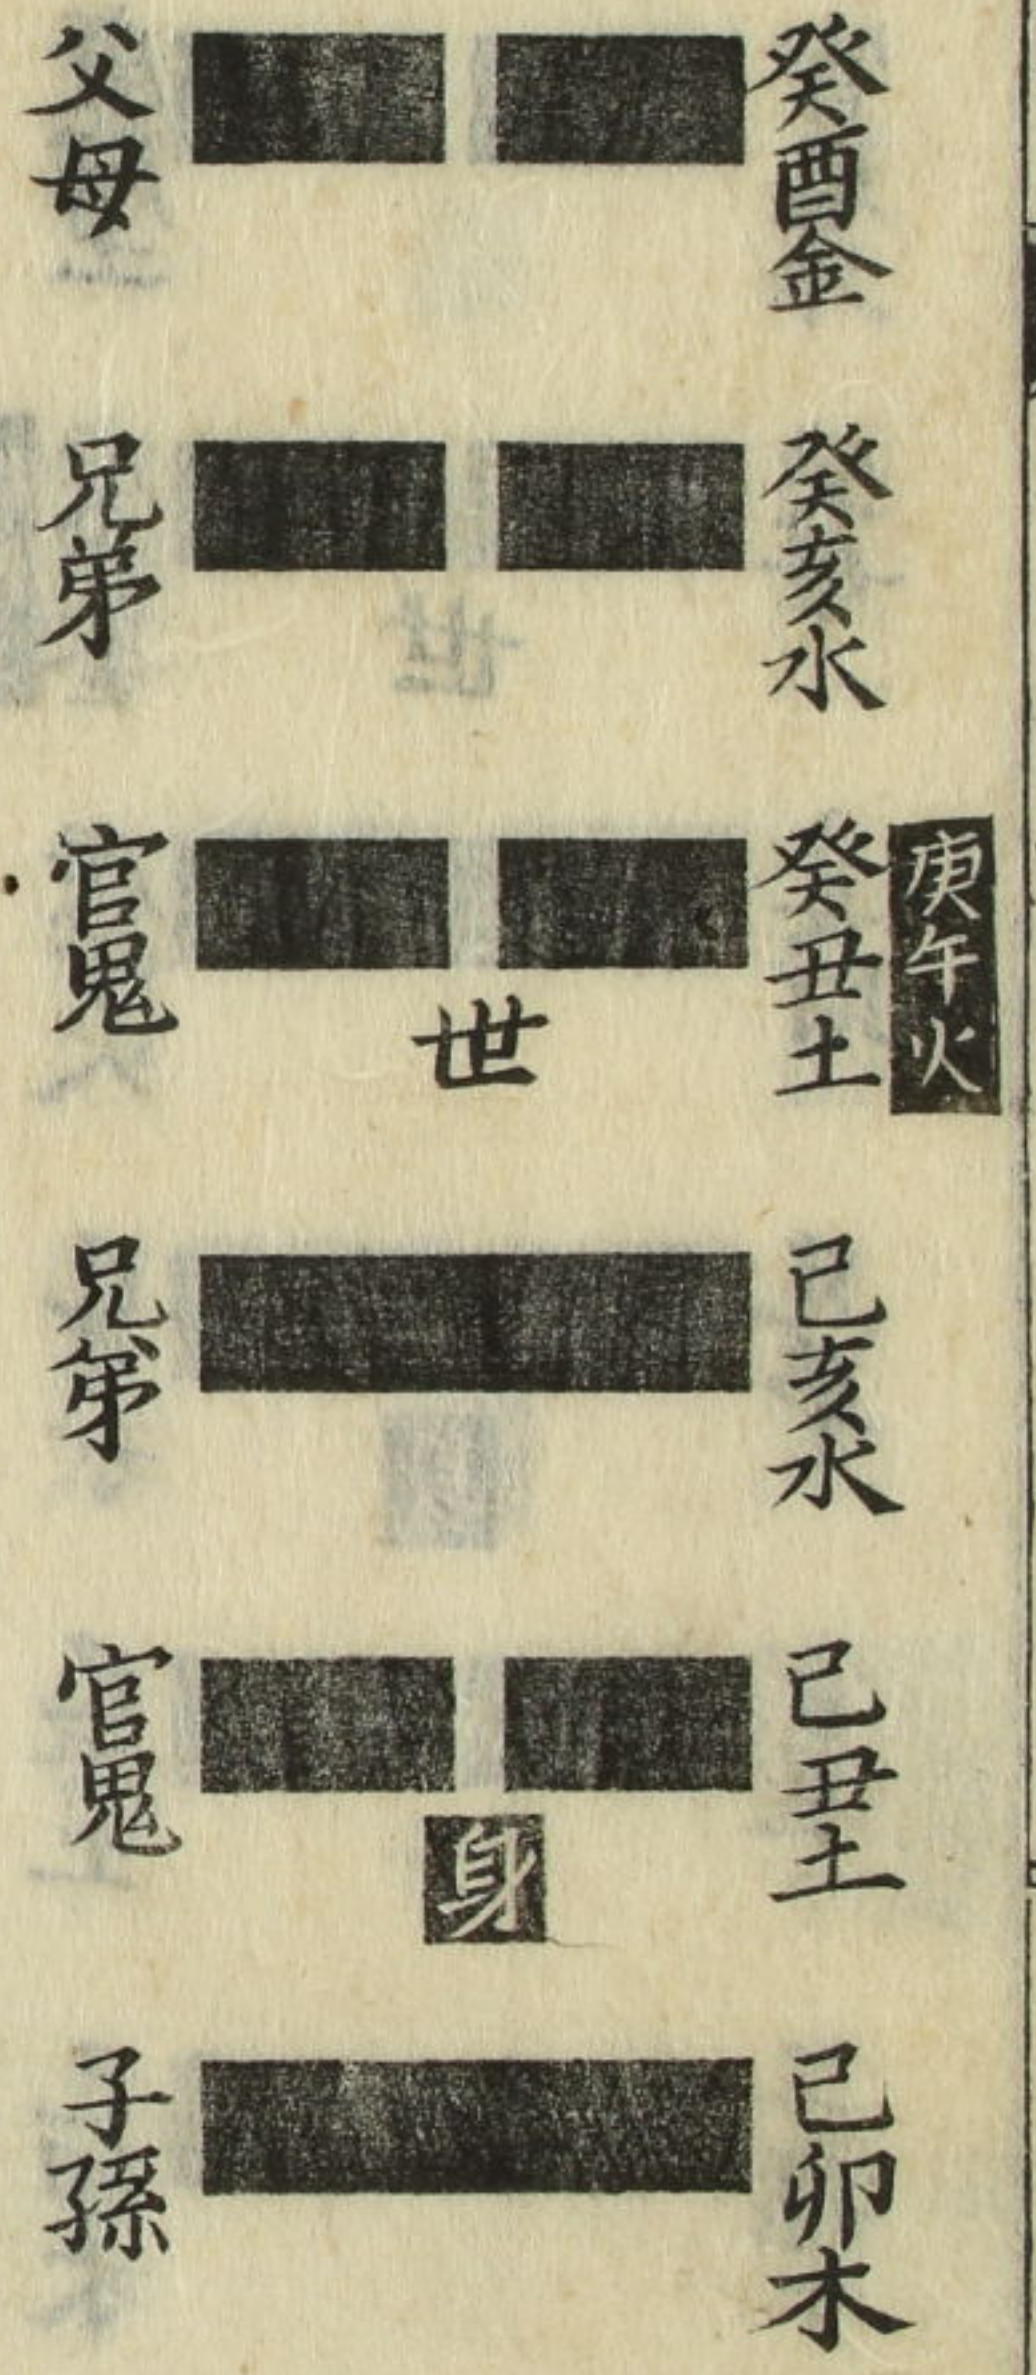 癸酉金
父母
癸亥水
兄弟
庚午火
癸丑土
世
官鬼
己亥水
兄弟
己丑土
身
官鬼
己卯木
子孫